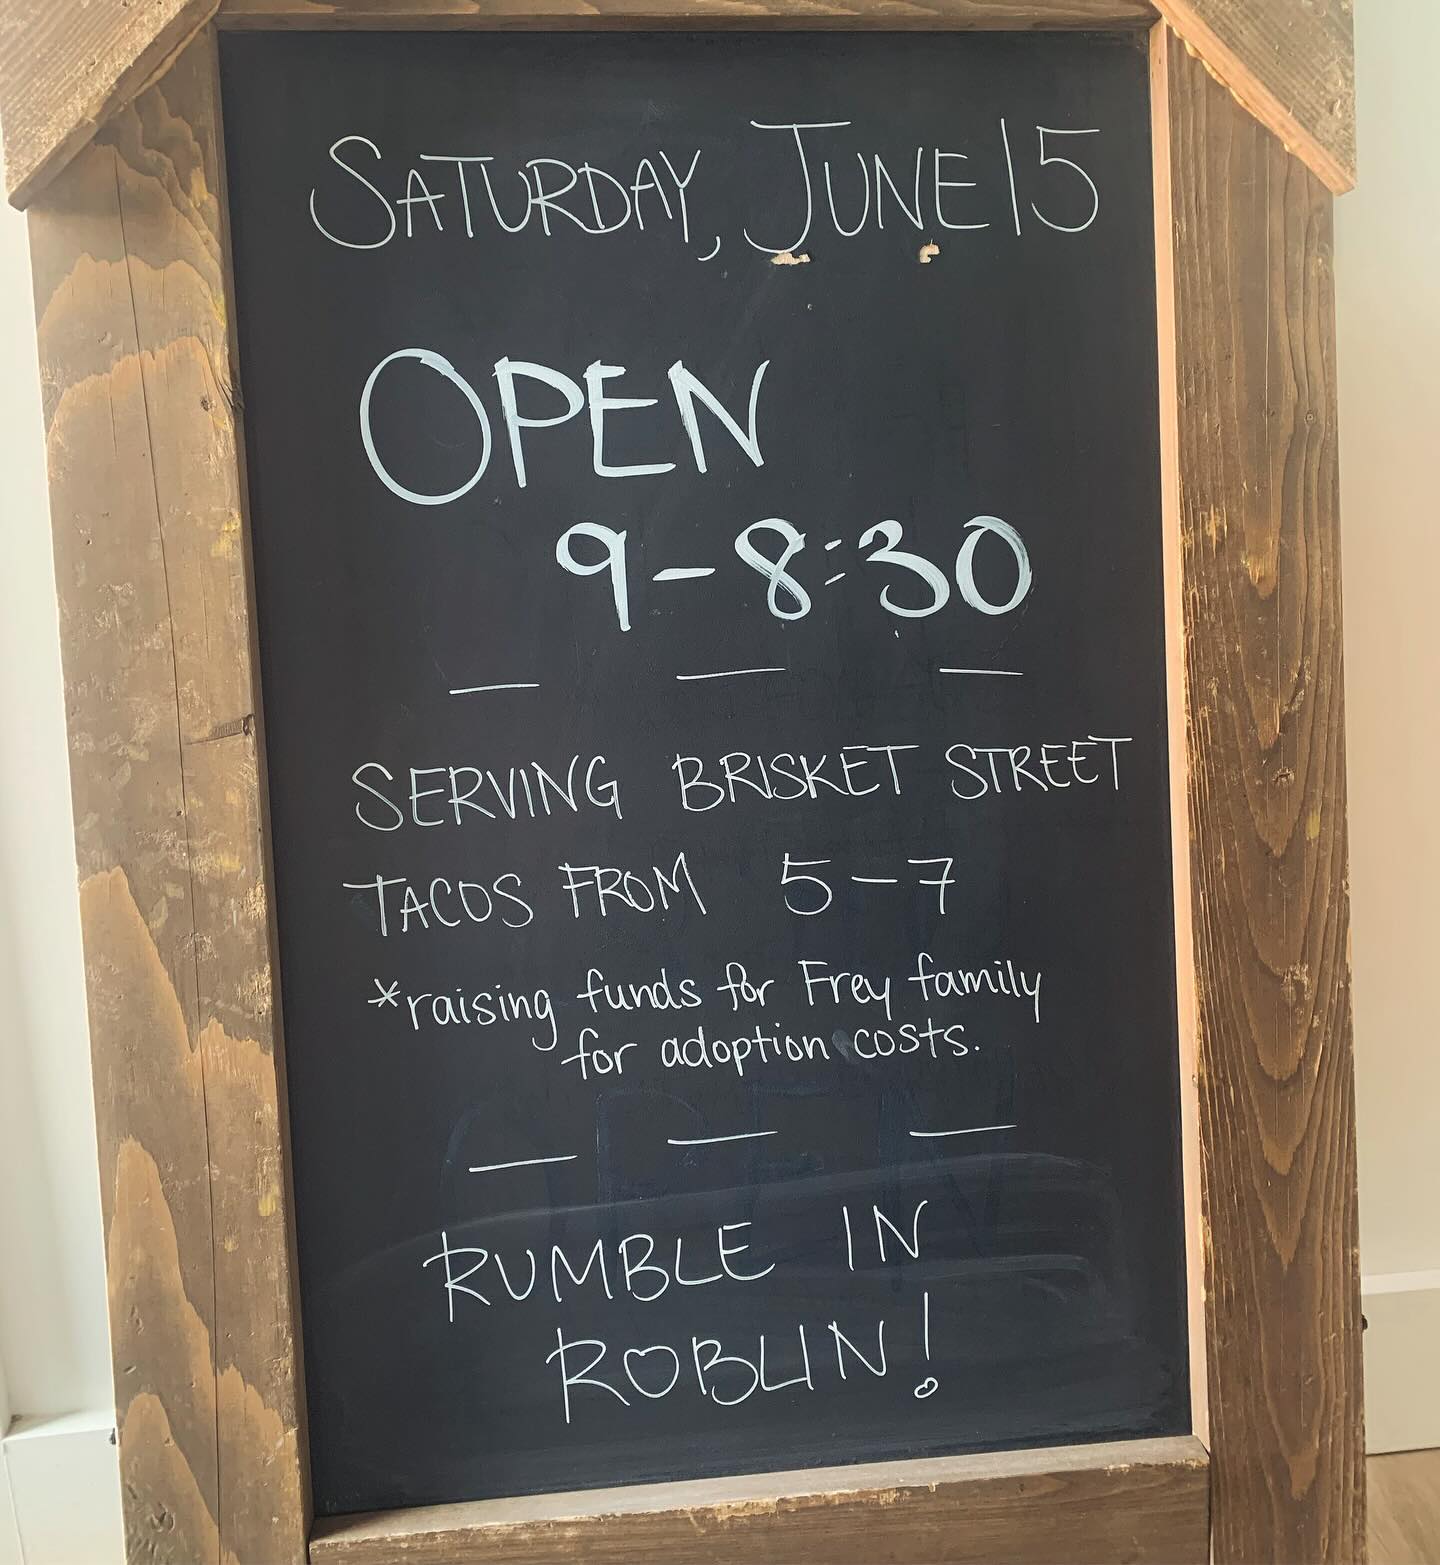 SATURDAY, JUNE 15
OPEN
9-8:30
SERVING BRISKET STREET
TACOS FROM 5-7
*raising funds for Frey family
for adoption costs.
RUMBLE IN
ROBLIN!